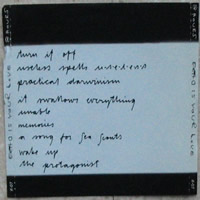 turn it off
useless spells u-s-e-l-e-s-s
practical darwinism
it swallows everything
unable
memories
a song for sea scouts
wake up
the protagonist